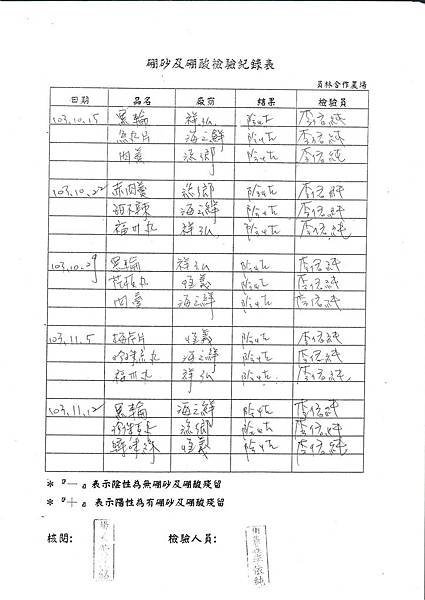 硼砂及硼酸檢驗紀錄表
員林合作農場
日期 品名 廠商 結果 檢驗員
103.10.15 黑輪 祥弘 陰性 李信純
魚丸片 海之鮮 陰性 李信純
肉羹 陰性 李信純
103.10.22 赤肉羹 陰性 李信純
甜不辣 海之鮮 陰性 李信純
福州丸 祥弘 陰性 李信純
103.10.29 黑輪 祥弘 陰性 李信純
恆義 陰性 李信純
肉羹 海之鮮 陰性 李信純
103.11.5 恆義 陰性 李信純
海之鮮 陰性 李信純
福州丸 祥弘 陰性 李信純
103.11.12 黑輪 海之鮮 陰性 李信純
陰性 李信純
恆義 陰性 李信純
* 『一』表示陰性為無硼砂及硼酸殘留
* 『十』表示陽性為有硼砂及硼酸殘留
核閱: 檢驗人員: